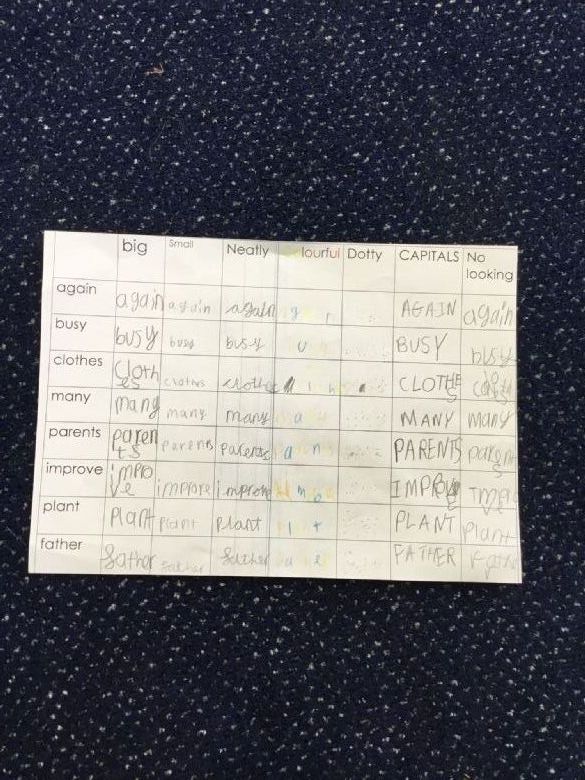 big Small Neatly lourful Dotty CAPITALS No looking
again again again again g n AGAIN again
busy busy busy busy u BUSY busy
clothes Clothes clothes clothes l h CLOTHES
many many many many a MANY Many
parents parents parents parents a n PARENTS parents
improve improve improve improve m o IMPROVE
plant Plant plant plant l t PLANT Plant
father father father father a e FATHER Father